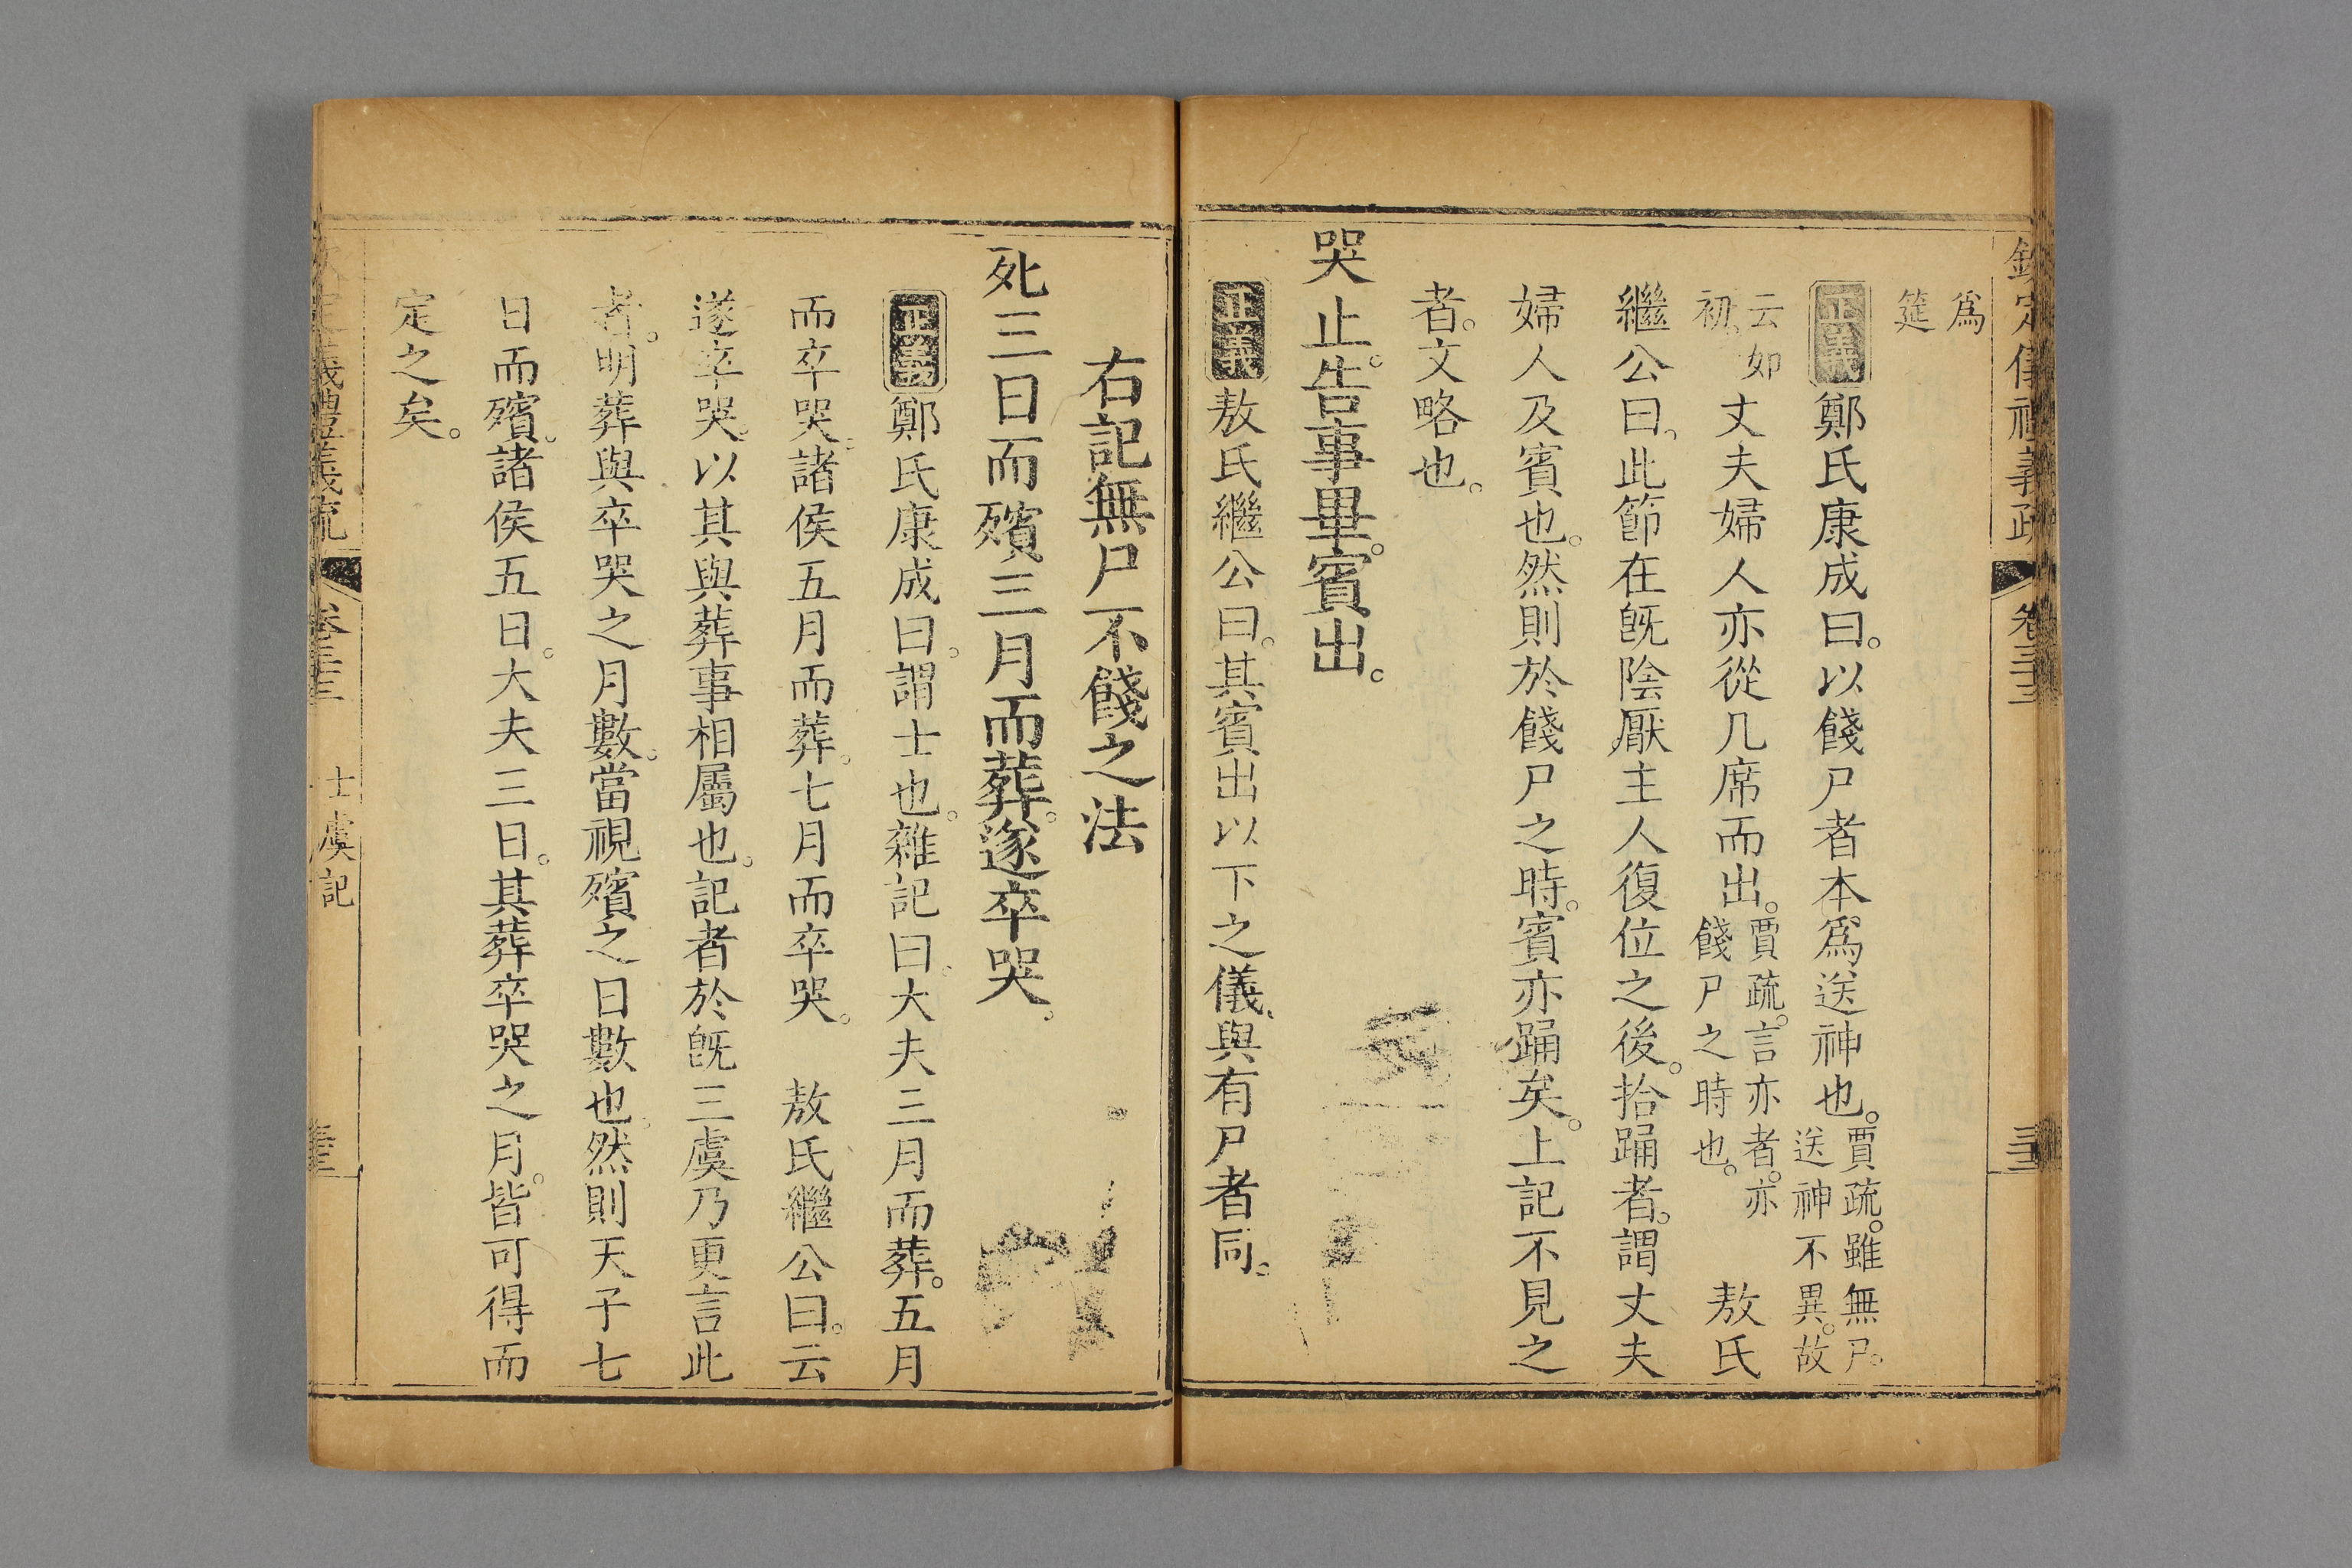 欽定儀禮義疏 卷三十三
爲
筵
正義鄭氏康成曰。以餞尸者本爲送神也。賈疏。雖無尸。送神不異。故
云如初。丈夫婦人亦從几席而出。賈疏。言亦者。亦餞尸之時也。 敖氏
繼公曰。此節在旣陰厭主人復位之後。拾踊者。謂丈夫
婦人及賓也。然則於餞尸之時。賓亦踊矣。上記不見之
者。文略也。
哭止。告事畢。賓出。
正義敖氏繼公曰。其賓出以下之儀、與有尸者同。
右記無尸不餞之法
死三日而殯三月而葬。遂卒哭。
正義鄭氏康成曰。謂士也。雜記曰。大夫三月而葬。五月
而卒哭。諸侯五月而葬。七月而卒哭。 敖氏繼公曰。云
遂卒哭。以其與葬事相屬也。記者於旣三虞乃更言此
者。明葬與卒哭之月數。當視殯之日數也。然則天子七
日而殯。諸侯五日。大夫三日。其葬卒哭之月。皆可得而
定之矣。
定儀禮義疏 卷三十三 士虞記